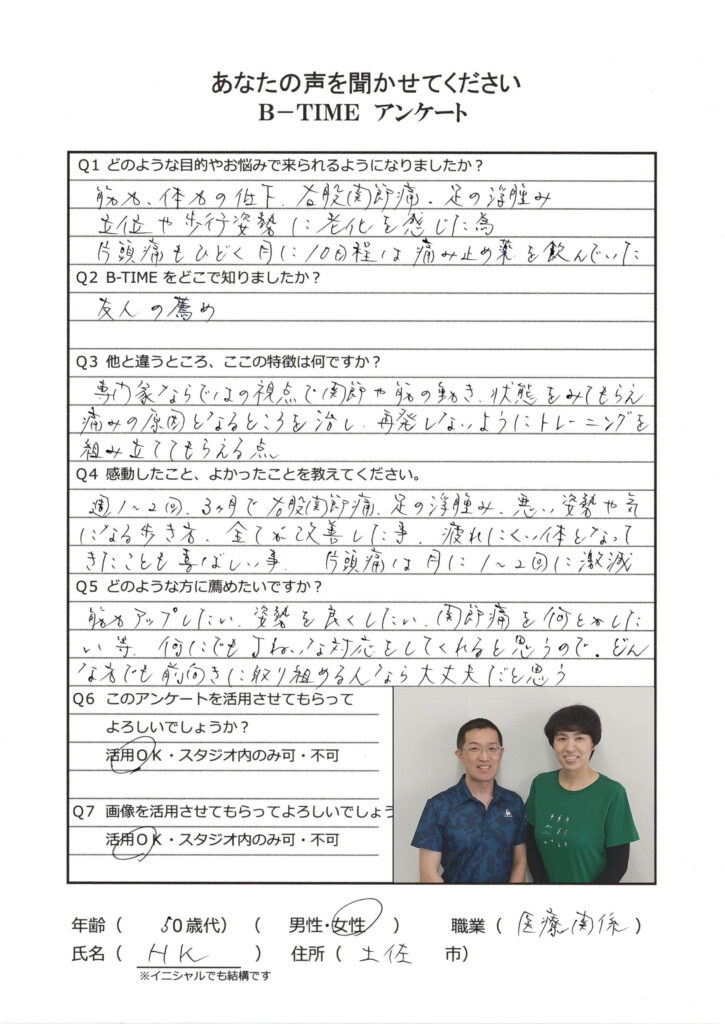 あなたの声を聞かせてください
B－TIME アンケート
Q1 どのような目的やお悩みで来られるようになりましたか？
筋力、体力の低下、右股関節痛、足の浮腫み
立位や歩行姿勢に老化を感じた為
片頭痛もひどく月に10回程は痛み止め薬を飲んでいた
Q2 B-TIME をどこで知りましたか？
友人の薦め
Q3 他と違うところ、ここの特徴は何ですか？
専門家ならではの視点で関節や筋の動き、状態をみてもらえ
痛みの原因となるところを治し、再発しないようにトレーニングを
組み立ててもらえる点
Q4 感動したこと、よかったことを教えてください。
週1～2回、3ヶ月で右股関節痛、足の浮腫み、悪い姿勢や気
になる歩き方、全てが改善した事、疲れにくい体となって
きたことも喜ばしい事、片頭痛は月に1～2回に激減
Q5 どのような方に薦めたいですか？
筋力アップしたい、姿勢を良くしたい、関節痛を何とかした
い等、何にでもていねいな対応をしてくれると思うので、どん
な方でも前向きに取り組める人なら大丈夫だと思う
Q6 このアンケートを活用させてもらって
よろしいでしょうか？
活用OK・スタジオ内のみ可・不可
Q7 画像を活用させてもらってよろしいでしょう
活用OK・スタジオ内のみ可・不可
年齢（ 50歳代）（ 男性・女性 ） 職業（ 医療関係 ）
氏名（ HK ） 住所（ 土佐 市）
※イニシャルでも結構です